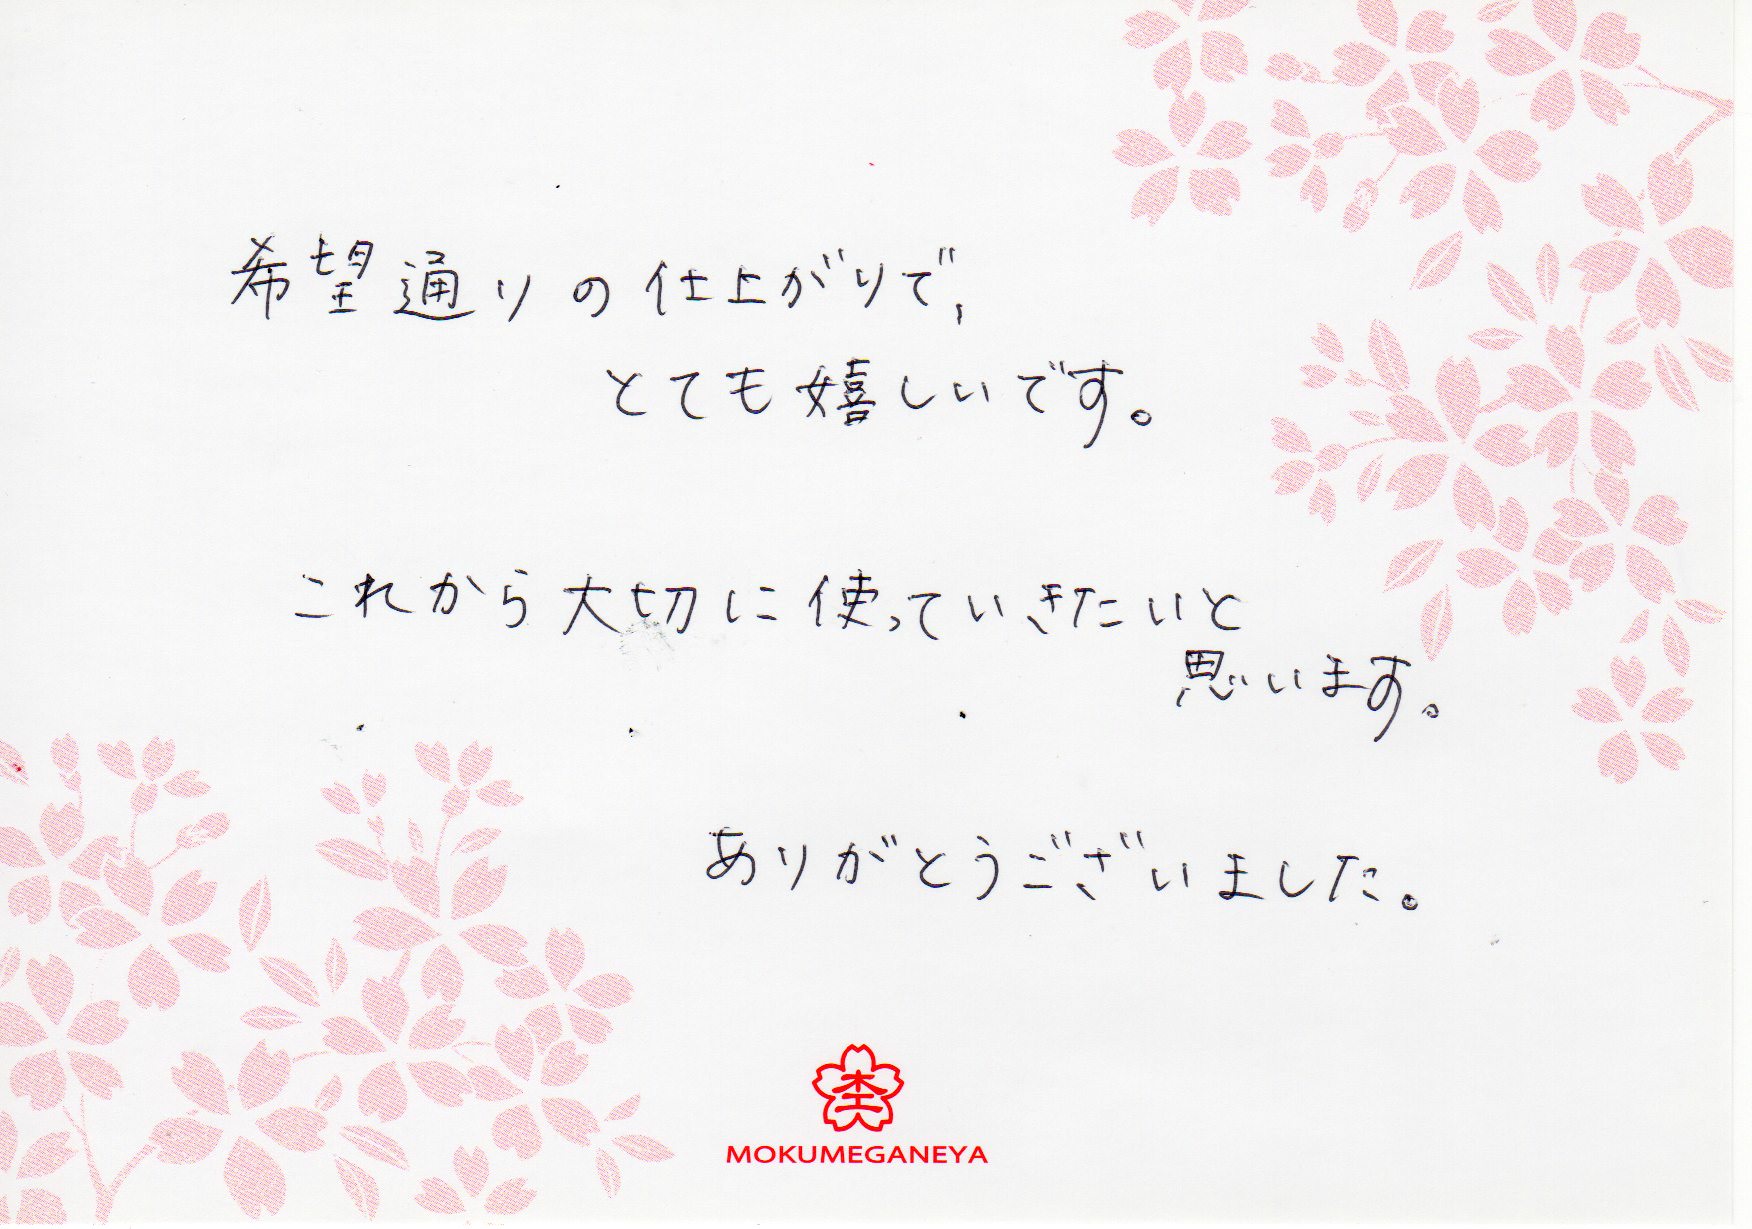 希望通りの仕上がりで、
とても嬉しいです。
これから大切に使っていきたいと
思います。
ありがとうございました。
MOKUMEGANEYA